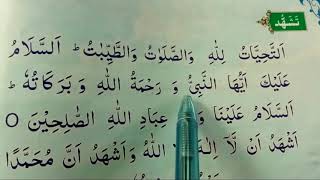 تَشَهُّد
اَلتَّحِيَّاتُ لِلّٰهِ وَالصَّلَوٰتُ وَالطَّيِّبٰتُ ؕ اَلسَّلَامُ
عَلَيْكَ اَيُّهَا النَّبِىُّ وَ رَحْمَةُ اللّٰهِ وَ بَرَكَاتُهٗ ؕ
اَلسَّلَامُ عَلَيْنَا وَ عِبَادِ اللّٰهِ الصّٰلِحِيْنَ ○
اَشْهَدُ اَنْ لَّآ اِلٰهَ اللّٰهُ وَاَشْهَدُ اَنَّ مُحَمَّدًا